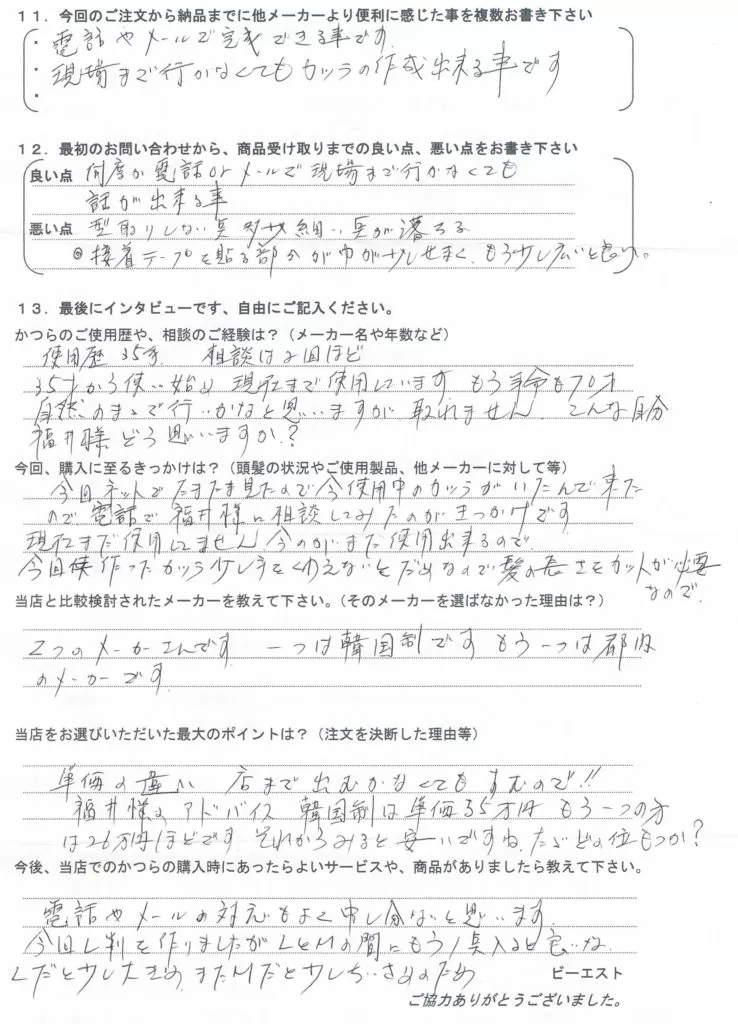 11．今回のご注文から納品までに他メーカーより便利に感じた事を複数お書き下さい
・電話やメールで完成できる事です
・現場まで行かなくてもカツラの作成出来る事です
・
12．最初のお問い合わせから、商品受け取りまでの良い点、悪い点をお書き下さい
良い点 何度か電話orメールで現場まで行かなくても
話が出来る事
悪い点 型取りしない為 多少 細い 点が落ちる
◎接着テープを貼る部分が巾が少しせまく、もう少し広いと良い。
13．最後にインタビューです、自由にご記入ください。
かつらのご使用歴や、相談のご経験は？（メーカー名や年数など）
使用歴35年 相談は2回ほど
35才から使い始め 現在まで使用しています もう年令も70才
自然のままで行こうかなと思いますが 取れません こんな自分
福井様どう思いますか？
今回、購入に至るきっかけは？（頭髪の状況やご使用製品、他メーカーに対して等）
今回ネットでたまたま見たので今使用中のカツラがいたんで来た
ので電話で福井様に相談してみたのがきっかけです
現在まだ使用してません 今のがまだ使用出来るので
今回 作ったカツラ少し手をくわえないとだめなので髪の長さをカットが必要
なので、
当店と比較検討されたメーカーを教えて下さい。（そのメーカーを選ばなかった理由は？）
2つのメーカーさんです 一つは韓国制です もう一つは都内
のメーカーです
当店をお選びいただいた最大のポイントは？（注文を決断した理由等）
単価の違い 店まで出むかなくてもすむので!!
福井様のアドバイス 韓国制は単価35万円 もう一つの方
は26万円ほどです それからみると安いですね、ただどの位もつか？
今後、当店でのかつらの購入時にあったらよいサービスや、商品がありましたら教えて下さい。
電話やメールの対応もよく申し分ないと思います
今回L判を作りましたがLとMの間にもう1点入ると良いな
Lだと少し大きめ、またMだと少しちいさめのため
ビーエスト
ご協力ありがとうございました。